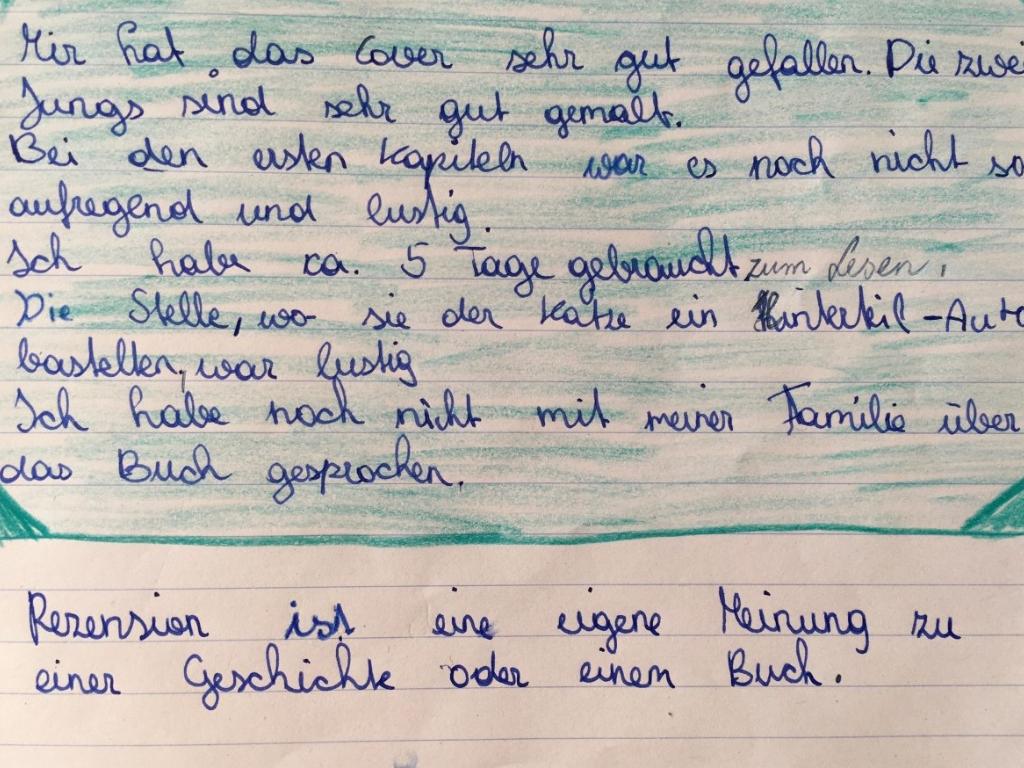 Mir hat das Cover sehr gut gefallen. Die zwei
Jungs sind sehr gut gemalt.
Bei den ersten Kapiteln war es noch nicht so
aufregend und lustig.
Ich habe ca. 5 Tage gebraucht zum Lesen.
Die Stelle, wo sie der Katze ein -Auto
bastelten, war lustig
Ich habe noch nicht mit meiner Familie über
das Buch gesprochen.
Rezension ist eine eigene Meinung zu
einer Geschichte oder einem Buch.